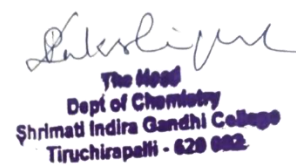 The Head
Dept of Chemistry
Shrimati Indira Gandhi College
Tiruchirapalli - 620 002.